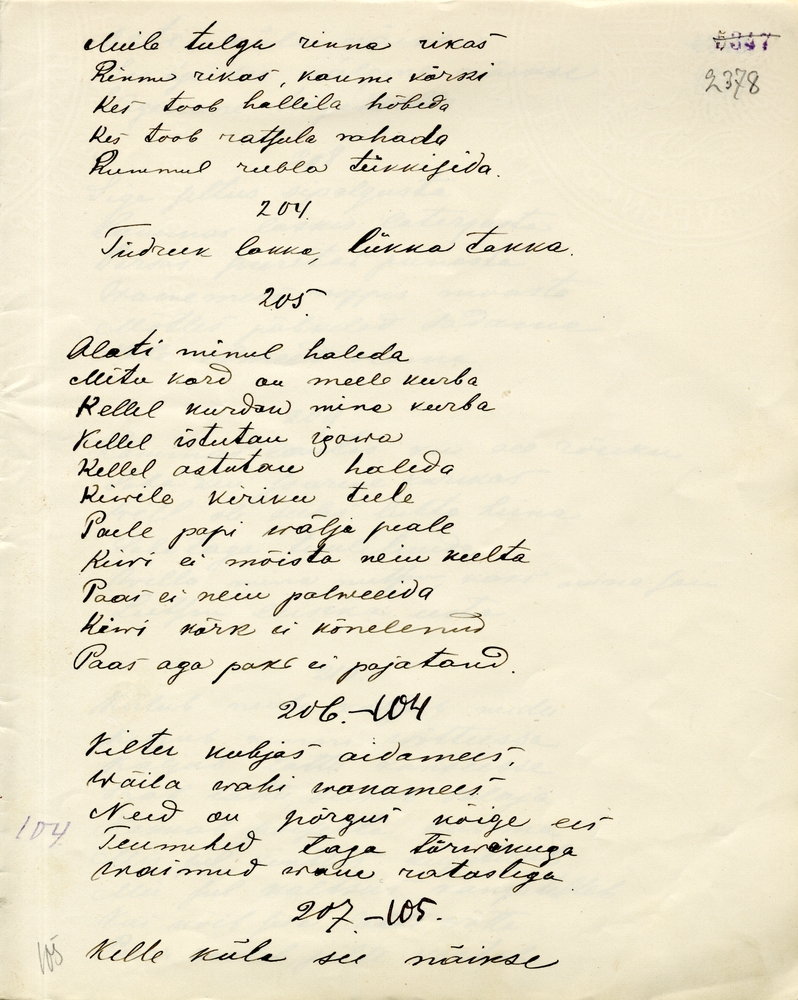 5347
2378
Meile tulgu rinna rikas
Rinna rikas, kaume kärsi
Kes toob hallila hõbeda
Kes toob ratsula rahada
Rummul rubla tükkisida.
204.
Tüdruk lakka, lükka takka.
205.
Alati minul haleda
Mitu kord on meele kurba
Kellel kurdan mina kurba
Kellel istutan igawa
Kellel astutan haleda
Kiwile kiriku teele
Paele papi wälja peale
Kiwi ei mõista neiu keelta
Paas ei neiu palweeida
Kiwi kõrk ei kõnelenud
Paas aga paks ei pajatand.
206.–104
Kilter kubjas aidamees,
Wäila wahi wanamees
Need on põrgus kõige ees
104
Teumehed taga tõrwikuga
Waimud wana ratastega
207–105.
105
Kelle küla see näikse